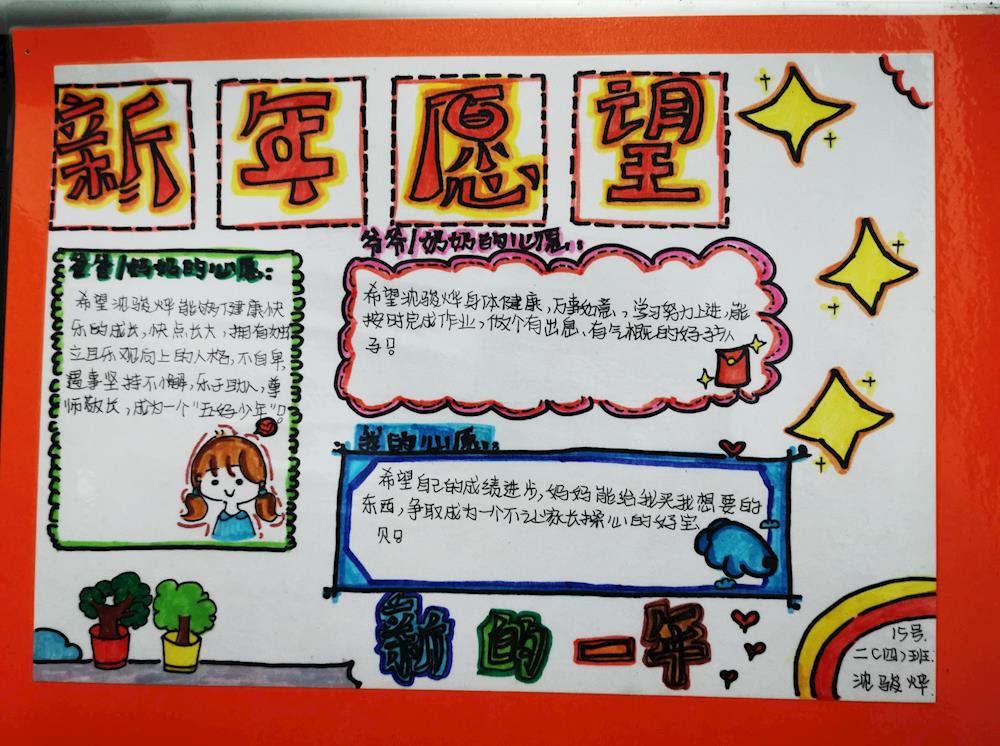 新年愿望
爸爸/妈妈的心愿:
希望沈骏烨能够健康快
乐的成长,快点长大,拥有独
立且乐观向上的人格,不自卑,
遇事坚持不懈,乐于助人,尊
师敬长,成为一个“五好少年”!
爷爷/奶奶的心愿:
希望沈骏烨身体健康,万事如意,学习努力上进,能
按时完成作业,做个有出息、有气概的好男
子!
我的心愿:
希望自己的成绩进步,妈妈能给我买我想要的
东西,争取成为一个不让家长操心的好宝
贝!
新的一年
15号.
二(四)班.
沈骏烨